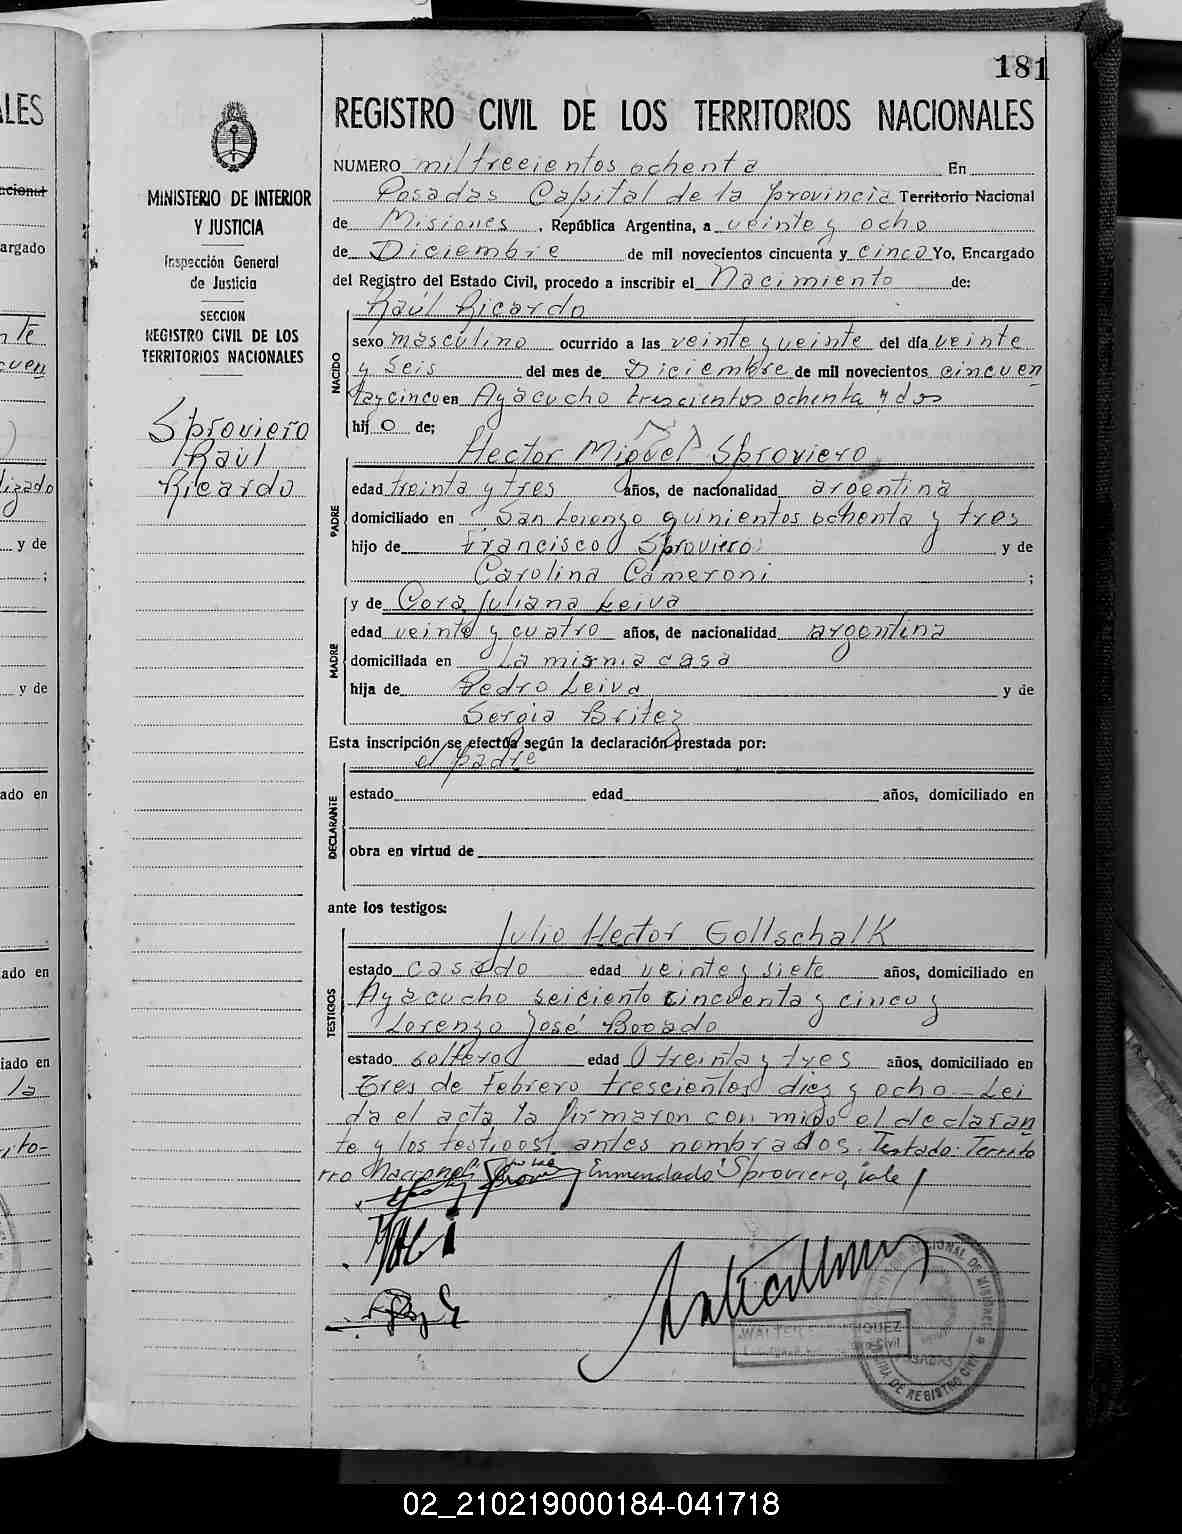 181
REGISTRO CIVIL DE LOS TERRITORIOS NACIONALES
MINISTERIO DE INTERIOR
Y JUSTICIA
Inspección General
de Justicia
SECCION
REGISTRO CIVIL DE LOS
TERRITORIOS NACIONALES
Sproviero
Raul
Ricardo
NUMERO mil trecientos ochenta En
Posadas Capital de la provincia Territorio Nacional
de Misiones, República Argentina, a veinte y ocho
de Diciembre de mil novecientos cincuenta y cinco Yo, Encargado
del Registro del Estado Civil, procedo a inscribir el Nacimiento de:
Raúl Ricardo
NACIDO
sexo masculino ocurrido a las veinte y veinte del día veinte
y seis del mes de Diciembre de mil novecientos cincuen
tay cinco en Ayacucho trescientos ochenta y dos
hij o de;
PADRE
Hector Miguel Sproviero
edad treinta y tres años, de nacionalidad argentina
domiciliado en San Lorenzo quinientos ochenta y tres
hijo de Francisco Sproviero y de
Carolina Cameroni ;
MADRE
y de Cora Juliana Leiva
edad veinte y cuatro años, de nacionalidad argentina
domiciliada en La misma casa
hija de Pedro Leiva y de
Sergia Britez
Esta inscripción se efectúa según la declaración prestada por:
el padre
DECLARANTE
estado edad años, domiciliado en
obra en virtud de
ante los testigos:
TESTIGOS
Julio Hector Gollschalk
estado casado edad veinte y siete años, domiciliado en
Ayacucho seiciento cincuenta y cinco y
Lorenzo José Booado
estado soltero edad treinta y tres años, domiciliado en
Tres de Febrero trescientos diez y ocho - Lei
da el acta la firmaron con migo el declaran
te y los testigos antes nombrados. Testado: Territo
rio Nacional Enmendado: Sproviero, vale
WALTER
POSADAS
DE REGISTRO CIVIL
02_210219000184-041718